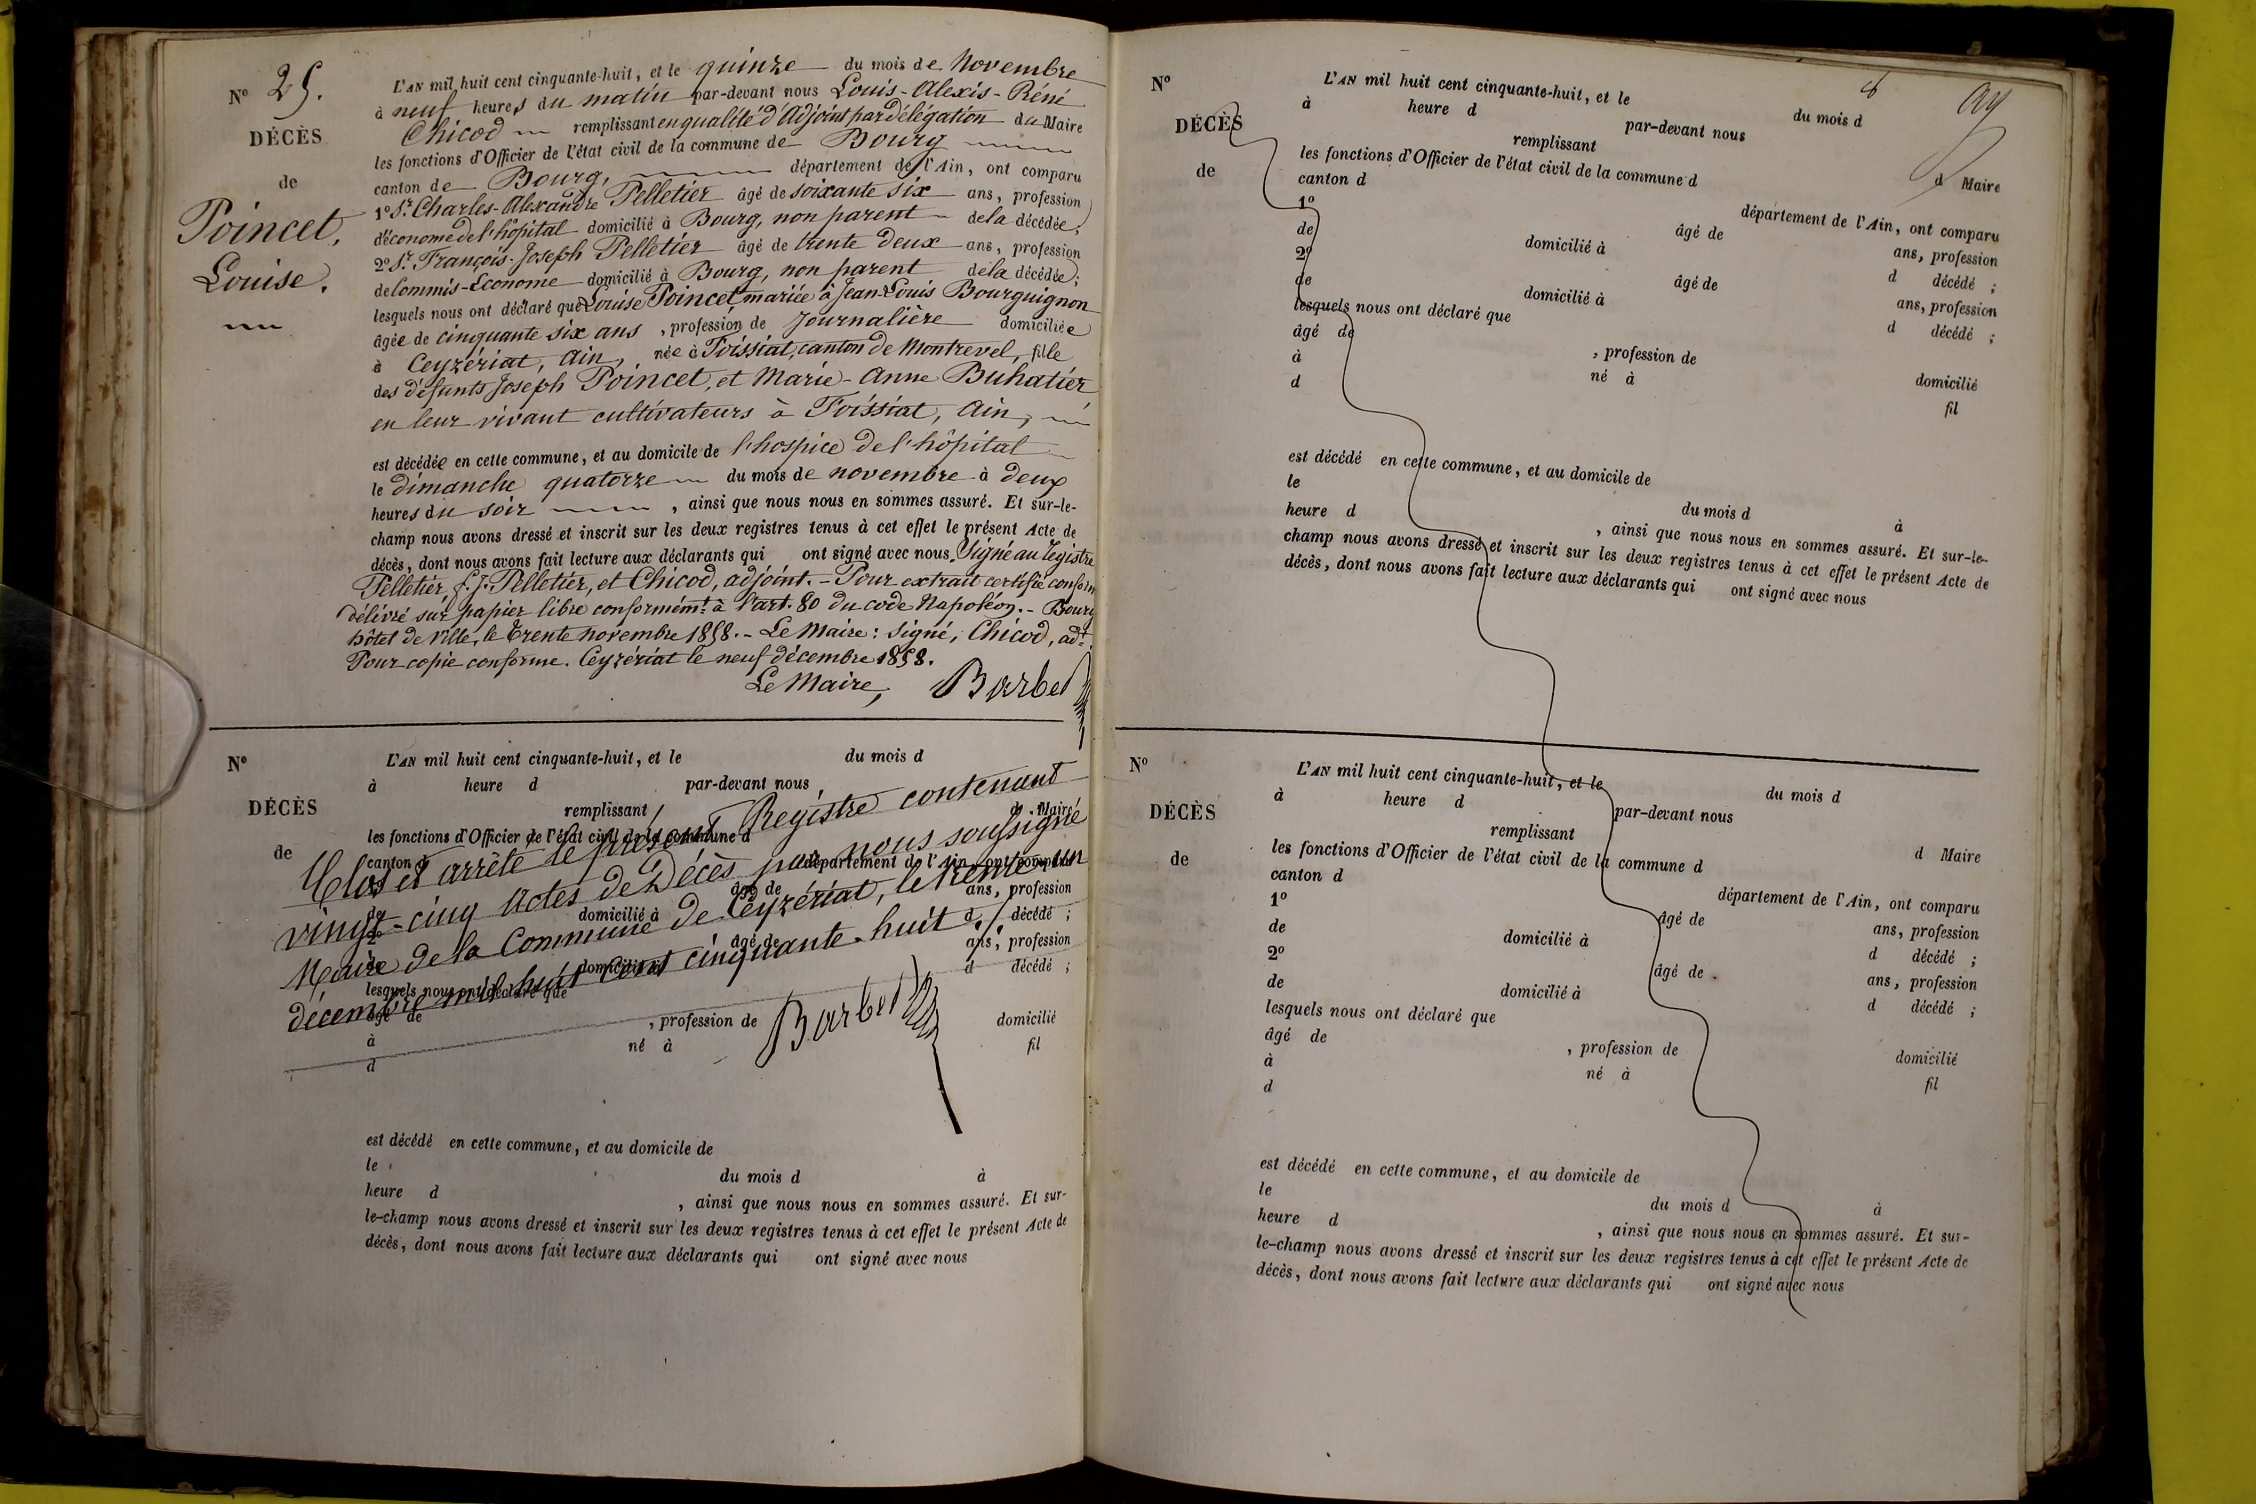 Nº 25.
DÉCÈS
de
Poincet,
Louise.
L'AN mil huit cent cinquante-huit, et le quinze du mois de Novembre
à neuf heures du matin par-devant nous Louis-Alexis-Réné
Chicod remplissant en qualité d'Adjoint par délégation du Maire
les fonctions d'Officier de l'état civil de la commune de Bourg
canton de Bourg, département de l'Ain, ont comparu
1º Sr. Charles-Alexandre Pelletier âgé de soixante six ans, profession
d'économe de l'hôpital domicilié à Bourg, non parent de la décédée;
2º Sr. François-Joseph Pelletier âgé de trente deux ans, profession
de Commis-Econome domicilié à Bourg, non parent de la décédée;
lesquels nous ont déclaré que Louise Poincet, mariée à Jean-Louis Bourguignon
âgée de cinquante six ans, profession de Journalière domiciliée
à Ceyzériat, Ain, née à Foissiat, canton de Montrevel, fille
des défunts Joseph Poincet, et Marie-Anne Buhatier
en leur vivant cultivateurs à Foissiat, Ain,
est décédée en cette commune, et au domicile de l'hospice de l'hôpital
le dimanche quatorze du mois de novembre à deux
heures du soir, ainsi que nous nous en sommes assuré. Et sur-le-
champ nous avons dressé et inscrit sur les deux registres tenus à cet effet le présent Acte de
décès, dont nous avons fait lecture aux déclarants qui ont signé avec nous. Signé au registre
Pelletier, f. J. Pelletier, et Chicod, adjoint. - Pour extrait certifié conform
délivré sur papier libre conformémt. à l'art. 80 du code Napoléon. - Bourg
hôtel de Ville, le trente novembre 1858. - Le Maire: signé, Chicod, adt.
Pour copie conforme. Ceyzériat le neuf décembre 1858.
Le Maire, Barbet
Nº
DÉCÈS
de
L'AN mil huit cent cinquante-huit, et le du mois d
à heure d par-devant nous
remplissant d Maire
les fonctions d'Officier de l'état civil de la commune d
canton d département de l'Ain, ont comparu
1º âgé de ans, profession
de domicilié à d décédé ;
2º âgé de ans, profession
de domicilié à d décédé ;
lesquels nous ont déclaré que
âgé de , profession de domicilié
à né à fil
d
Clos et arrêté le présent Registre contenant
vingt-cinq Actes de Décès par nous soussigné
Maire de la Commune de Ceyzériat, le trente-un
décembre mil huit cent cinquante-huit.
Barbet
est décédé en cette commune, et au domicile de
le du mois d à
heure d , ainsi que nous nous en sommes assuré. Et sur-
le-champ nous avons dressé et inscrit sur les deux registres tenus à cet effet le présent Acte de
décès, dont nous avons fait lecture aux déclarants qui ont signé avec nous
Nº
DÉCÈS
de
L'AN mil huit cent cinquante-huit, et le du mois d
à heure d par-devant nous
remplissant d Maire
les fonctions d'Officier de l'état civil de la commune d
canton d département de l'Ain, ont comparu
1º âgé de ans, profession
de domicilié à d décédé ;
2º âgé de ans, profession
de domicilié à d décédé ;
lesquels nous ont déclaré que
âgé de , profession de domicilié
à né à fil
d
est décédé en cette commune, et au domicile de
le du mois d à
heure d , ainsi que nous nous en sommes assuré. Et sur-le-
champ nous avons dressé et inscrit sur les deux registres tenus à cet effet le présent Acte de
décès, dont nous avons fait lecture aux déclarants qui ont signé avec nous
Nº
DÉCÈS
de
L'AN mil huit cent cinquante-huit, et le du mois d
à heure d par-devant nous
remplissant d Maire
les fonctions d'Officier de l'état civil de la commune d
canton d département de l'Ain, ont comparu
1º âgé de ans, profession
de domicilié à d décédé ;
2º âgé de ans, profession
de domicilié à d décédé ;
lesquels nous ont déclaré que
âgé de , profession de domicilié
à né à fil
d
est décédé en cette commune, et au domicile de
le du mois d à
heure d , ainsi que nous nous en sommes assuré. Et sur-
le-champ nous avons dressé et inscrit sur les deux registres tenus à cet effet le présent Acte de
décès, dont nous avons fait lecture aux déclarants qui ont signé avec nous